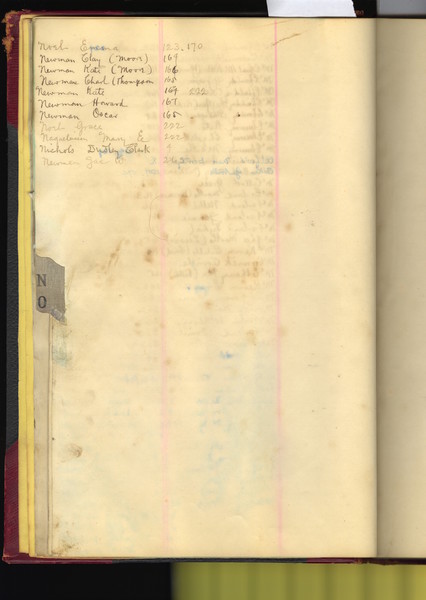 Noel 123, 170
Newman Clay (Moore) 169
Newman Kate (Moore) 166
Newman Charl (Thompson 165
Newman Kate 169 222
Newman Howard 167
Newman Oscar 165
Grace 222
Mary E 222
Nichols Dudley Clark 9
Newman Geo W
N
O